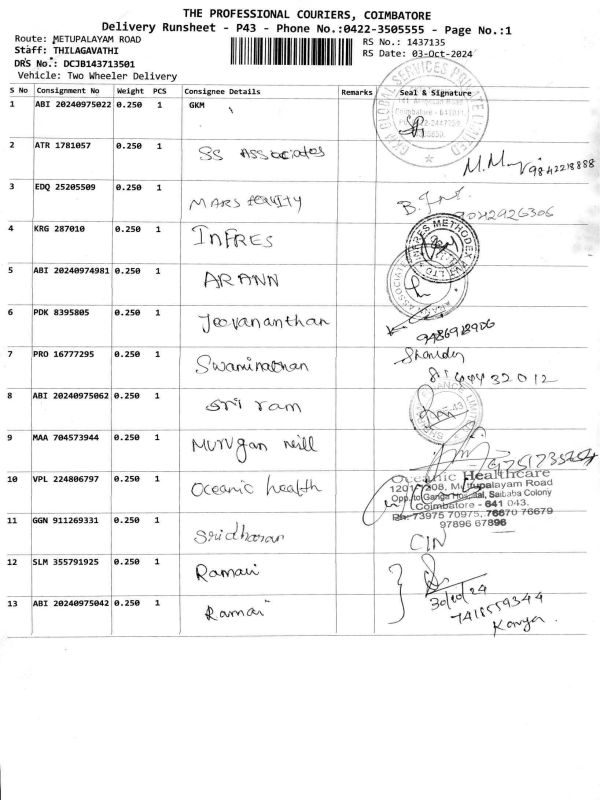 THE PROFESSIONAL COURIERS, COIMBATORE
Delivery Runsheet - P43 - Phone No.:0422-3505555 - Page No.:1
Route: METUPALAYAM ROAD RS No.: 1437135
Staff: THILAGAVATHI RS Date: 03-Oct-2024
DRS No.: DCJB143713501
Vehicle: Two Wheeler Delivery
S No Consignment No Weight PCS Consignee Details Remarks Seal & Signature
1 ABI 20240975022 0.250 1 GKM
2 ATR 1781057 0.250 1 SS Associates
9842218888
3 EDQ 25205509 0.250 1 MARS EQUITY
4 KRG 287010 0.250 1 INFRES
5 ABI 20240974981 0.250 1 ARANN
6 PDK 8395805 0.250 1 Jeevananthan
7 PRO 16777295 0.250 1 Swaminathan
8 ABI 20240975062 0.250 1 Sri ram
9 MAA 704573944 0.250 1 Murugan mill
10 VPL 224806797 0.250 1 Oceanic health
Oceanic Healthcare
Mettupalayam Road
Opp. to Ganga Hospital, Saibaba Colony
Coimbatore - 641 043.
Ph: 73975 70975, 76670 76679
97896 67896
11 GGN 911269331 0.250 1 Sridharan
12 SLM 355791925 0.250 1 Ramani
13 ABI 20240975042 0.250 1 Ramani
7418559344
Kanya